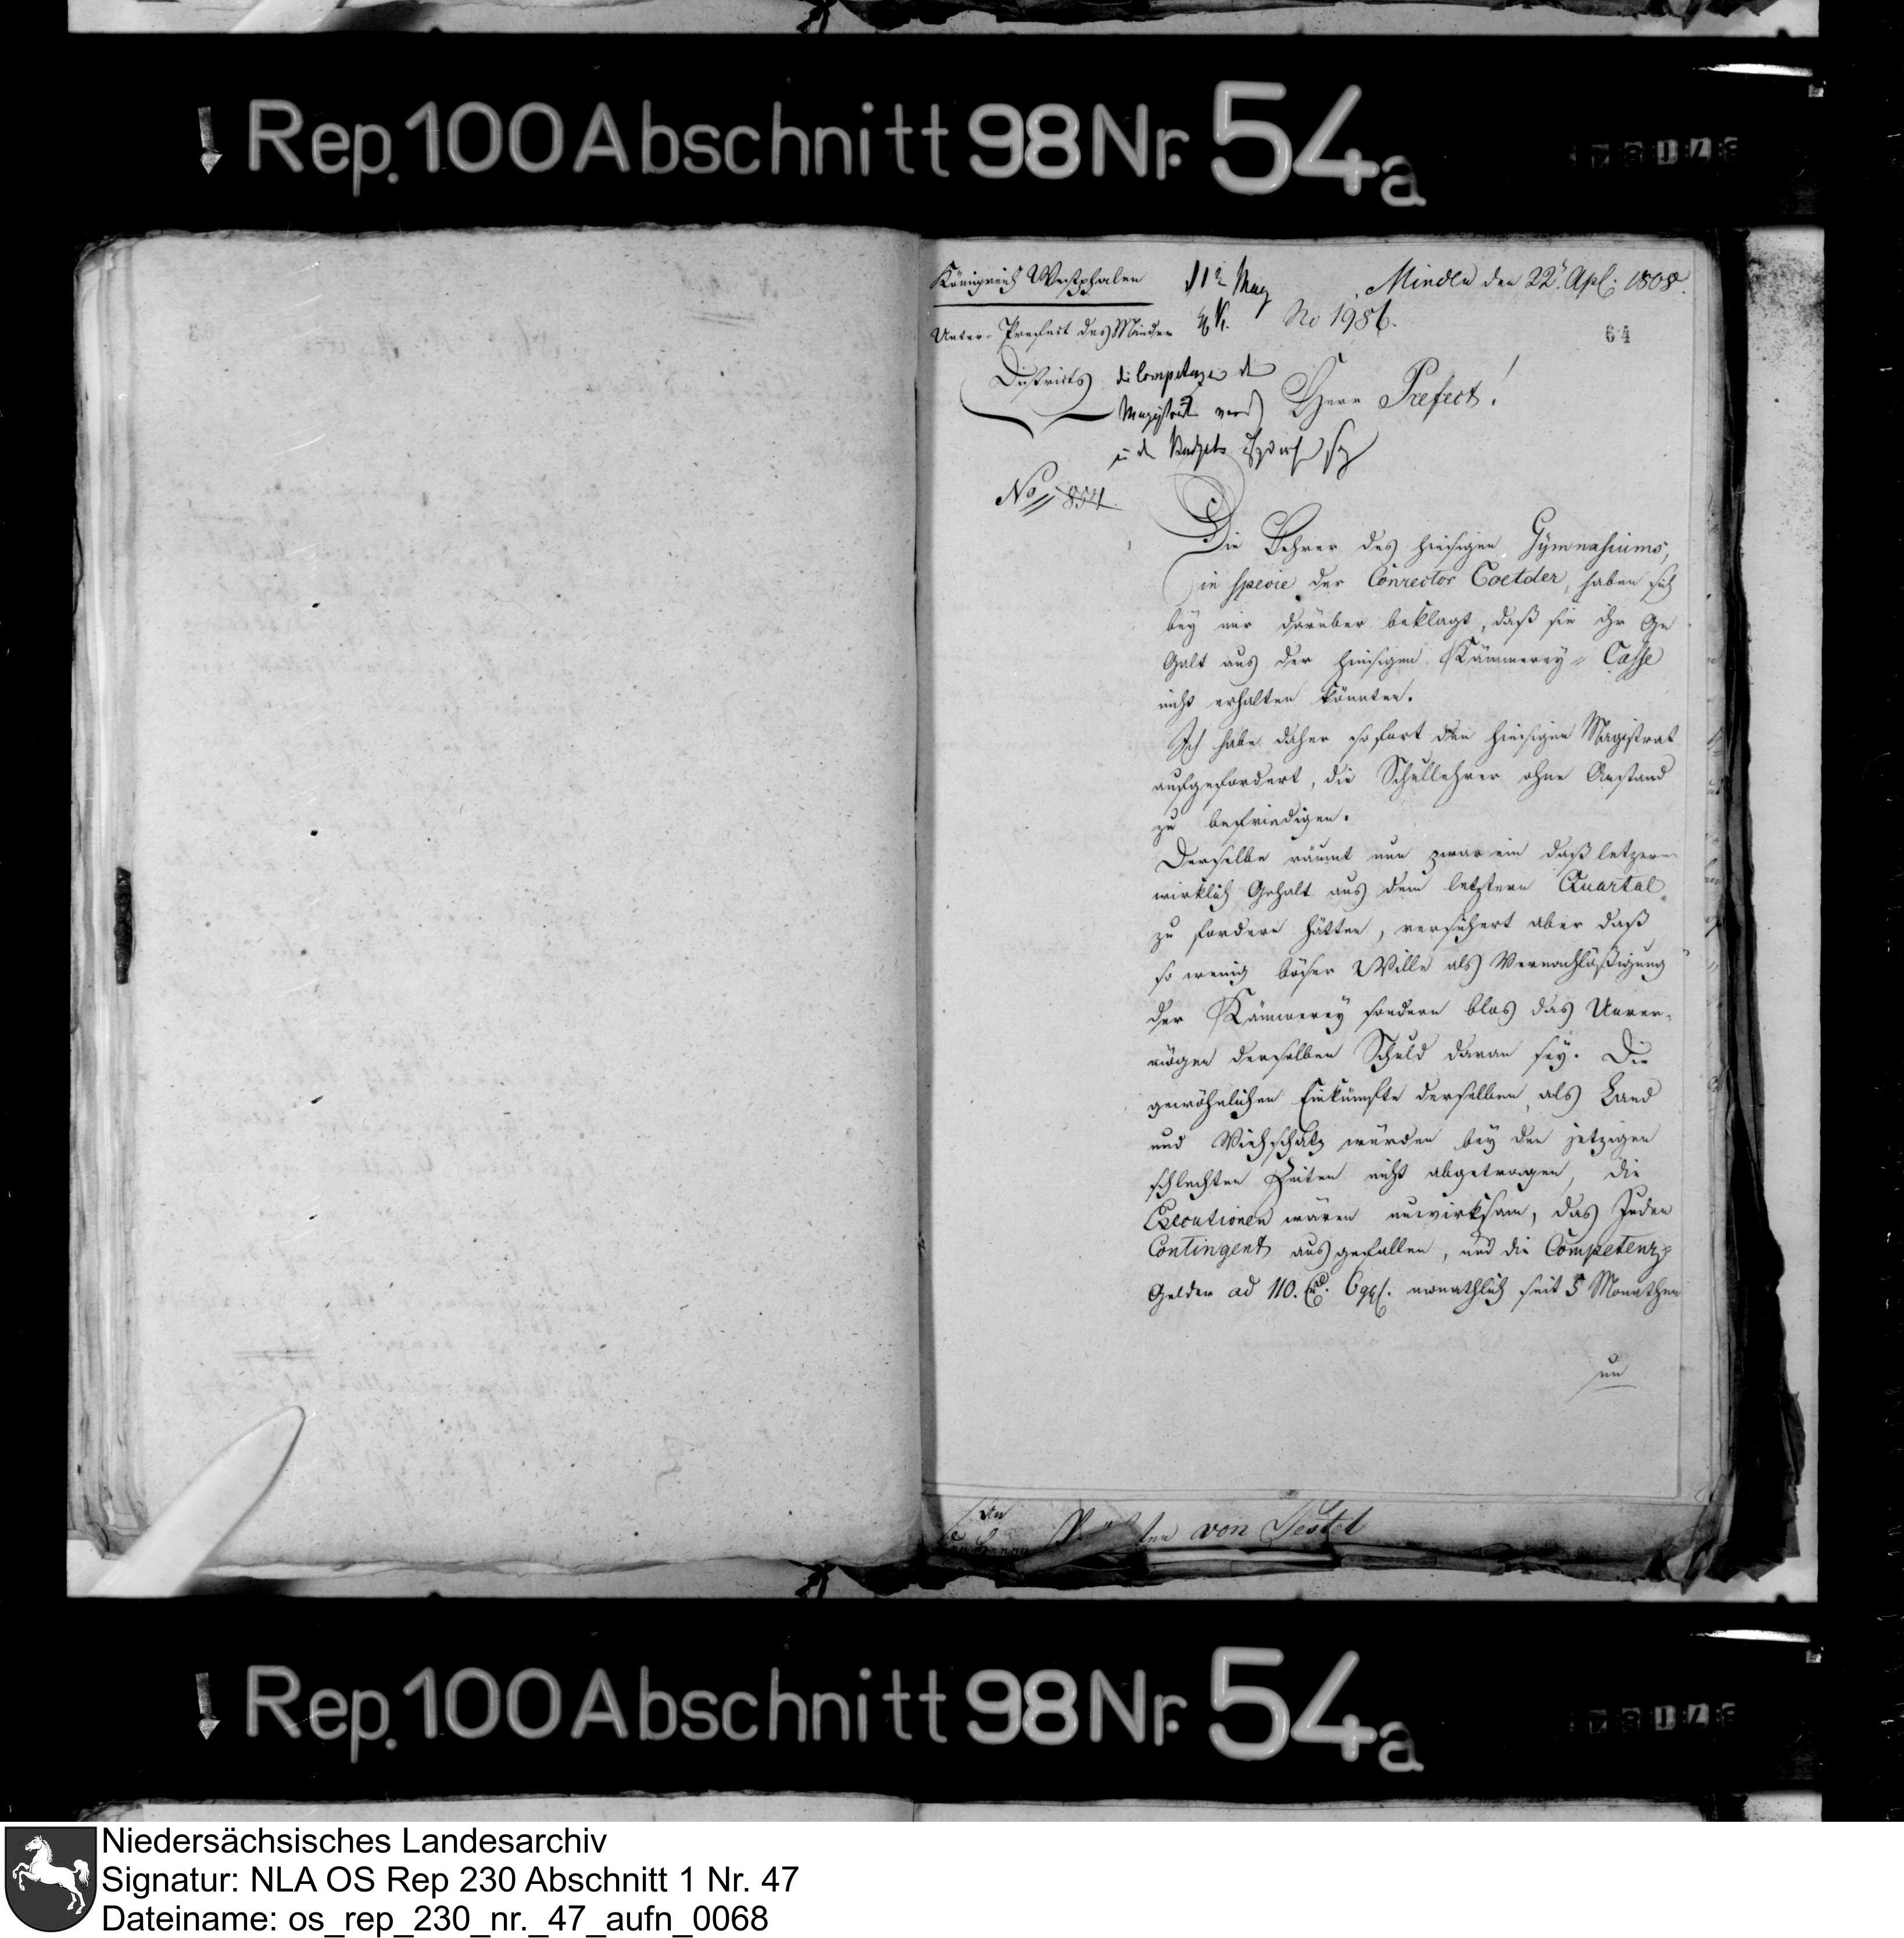 Rep. 100 Abschnitt 98 Nr. 54a
Königreich Westphalen
Unter-Prefect des Minden
Districts
Minden den 22t Apl: 1808.
No 1986.
64
die Competenz
Magistrat
Herr Prefect!
No 854.
Die Lehrer des hiesigen Gymnasiums,
in specie der Conrector Coetder, haben sich
bey mir darüber beklagt, daß sie ihr Ge
halt aus der hiesigen Kämmerey-Casse
nicht erhalten könnten.
Ich habe daher sofort den hiesigen Magistrat
aufgefordert, die Schullehrer ohne Anstand
zu befriedigen.
Derselbe räumt nun zwar ein daß letzere
wirklich Gehalt aus dem letztern Quartal
zu fordern hätten, versichert aber daß
so wenig böser Wille als Vernachläßigung
der Kämmerey sondern blos das Unver-
mögen derselben Schuld daran sey. Die
gewöhnlichen Einkünfte derselben, als Land
und Viehschatz würden bey den jetzigen
schlechten Zeiten nicht abgetragen, die
Executionen wären unwirksam, das Juden
Contingent ausgefallen, und die Competenz
Gelder ad 110. 6 ggl. monathlich seit 5 Monathen
un
An
den Herrn
von Pestel
Rep. 100 Abschnitt 98 Nr. 54a
Niedersächsisches Landesarchiv
Signatur: NLA OS Rep 230 Abschnitt 1 Nr. 47
Dateiname: os_rep_230_nr._47_aufn_0068